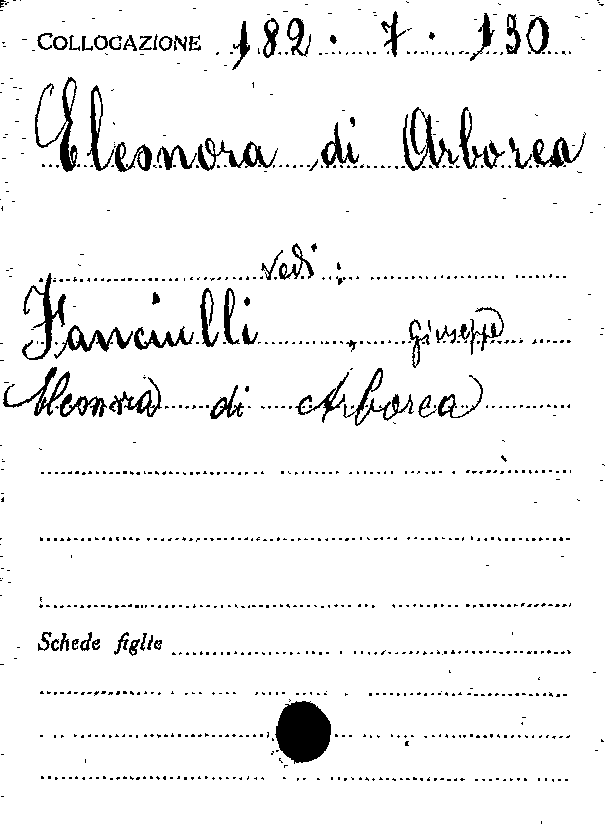 COLLOCAZIONE 182.7.130
Eleonora di Arborea
Vedi:
Fanciulli, Giuseppe
Eleonora di Arborea
Schede figlie